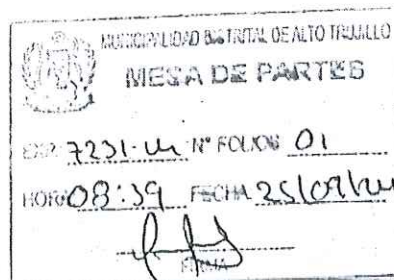 MUNICIPALIDAD DISTRITAL DE ALTO TRUJILLO
MESA DE PARTES
EXP. 7231-24 N° FOLIOS 01
HORA 08:39 FECHA 25/09/24
FIRMA